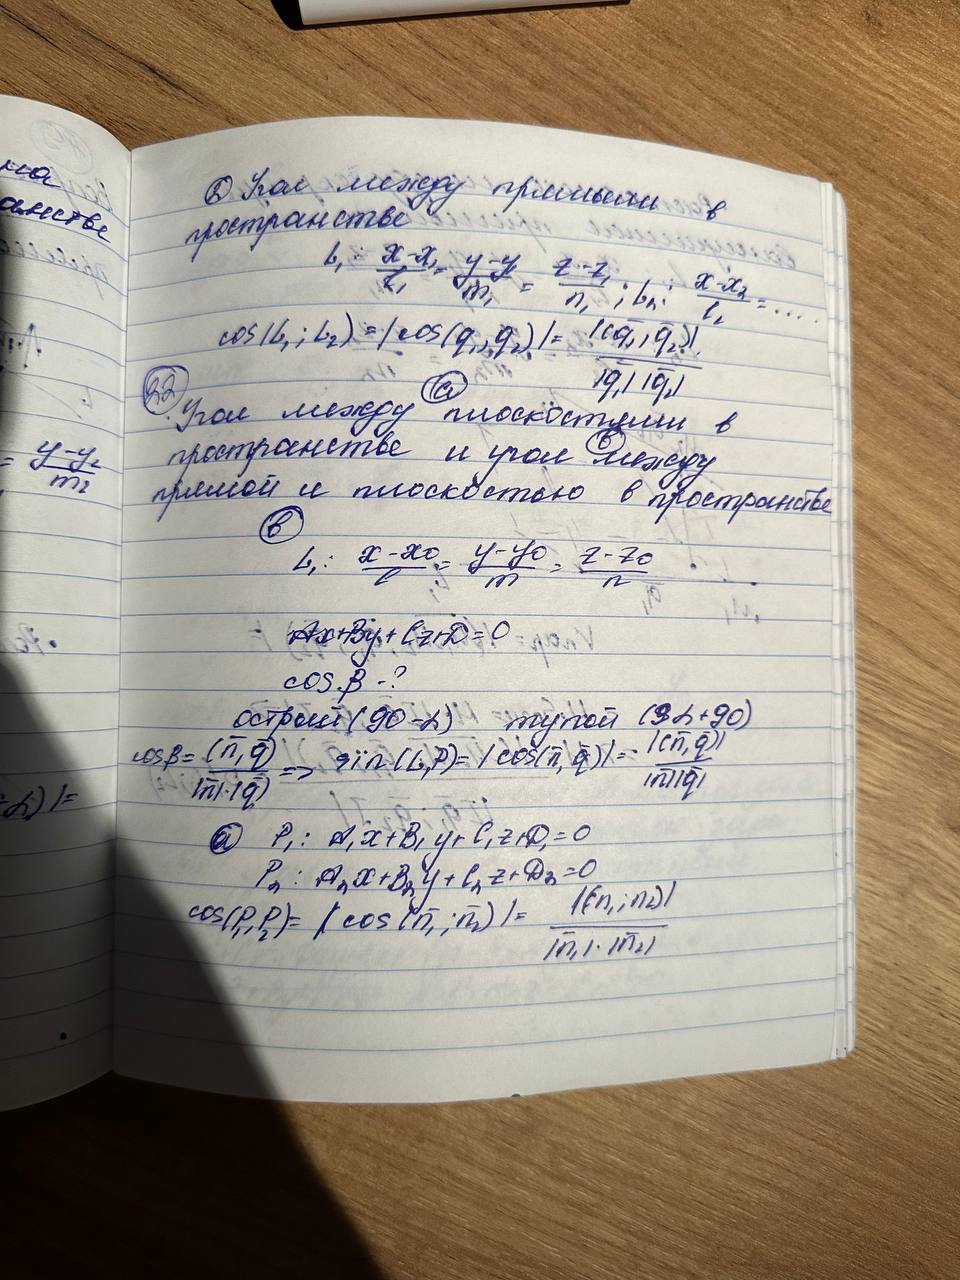 на
анстве
= y-y₂/m₂
② Угол между прямыми в
пространстве
L₁ x-x₁/l₁ = y-y₁/m₁ = z-z₁/n₁ ; L₂: x-x₂/l₂ = ....
cos(L₁; L₂) = |cos(q̄₁, q̄₂)| = |(q̄₁, q̄₂)|/|q̄₁| |q̄₂|
22
Угол между ⓐ плоскостями в
пространстве и угол ⓑ между
прямой и плоскостью в пространстве
ⓑ
L₁: x-x₀/l = y-y₀/m = z-z₀/n
Ax+By+Cz+D=0
cos β -?
острый (90-α) тупой (α+90)
cosβ = (n̄, q̄)/|n̄|·|q̄| => sin(L,P) = |cos(n̄, q̄)| = |(n̄, q̄)|/|n̄||q̄|
ⓐ P₁: A₁x+B₁y+C₁z+D₁=0
P₂: A₂x+B₂y+C₂z+D₂=0
cos(P₁, P₂) = |cos(n̄₁; n̄₂)| = |(n₁; n₂)|/|n̄₁|·|n̄₂|